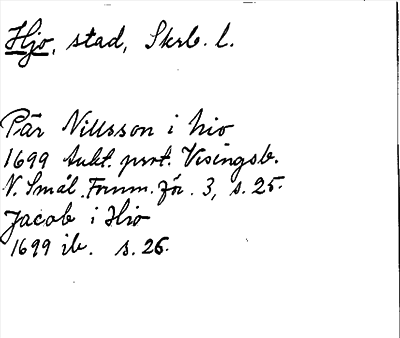 Hjo, stad, Skrb. l.
Pär Nillsson i hio
1699 Aukt. prot. Visingsb.
N. Smål. Fornm.för. 3, s. 25.
Jacob i Hio
1699 ib. s. 26.